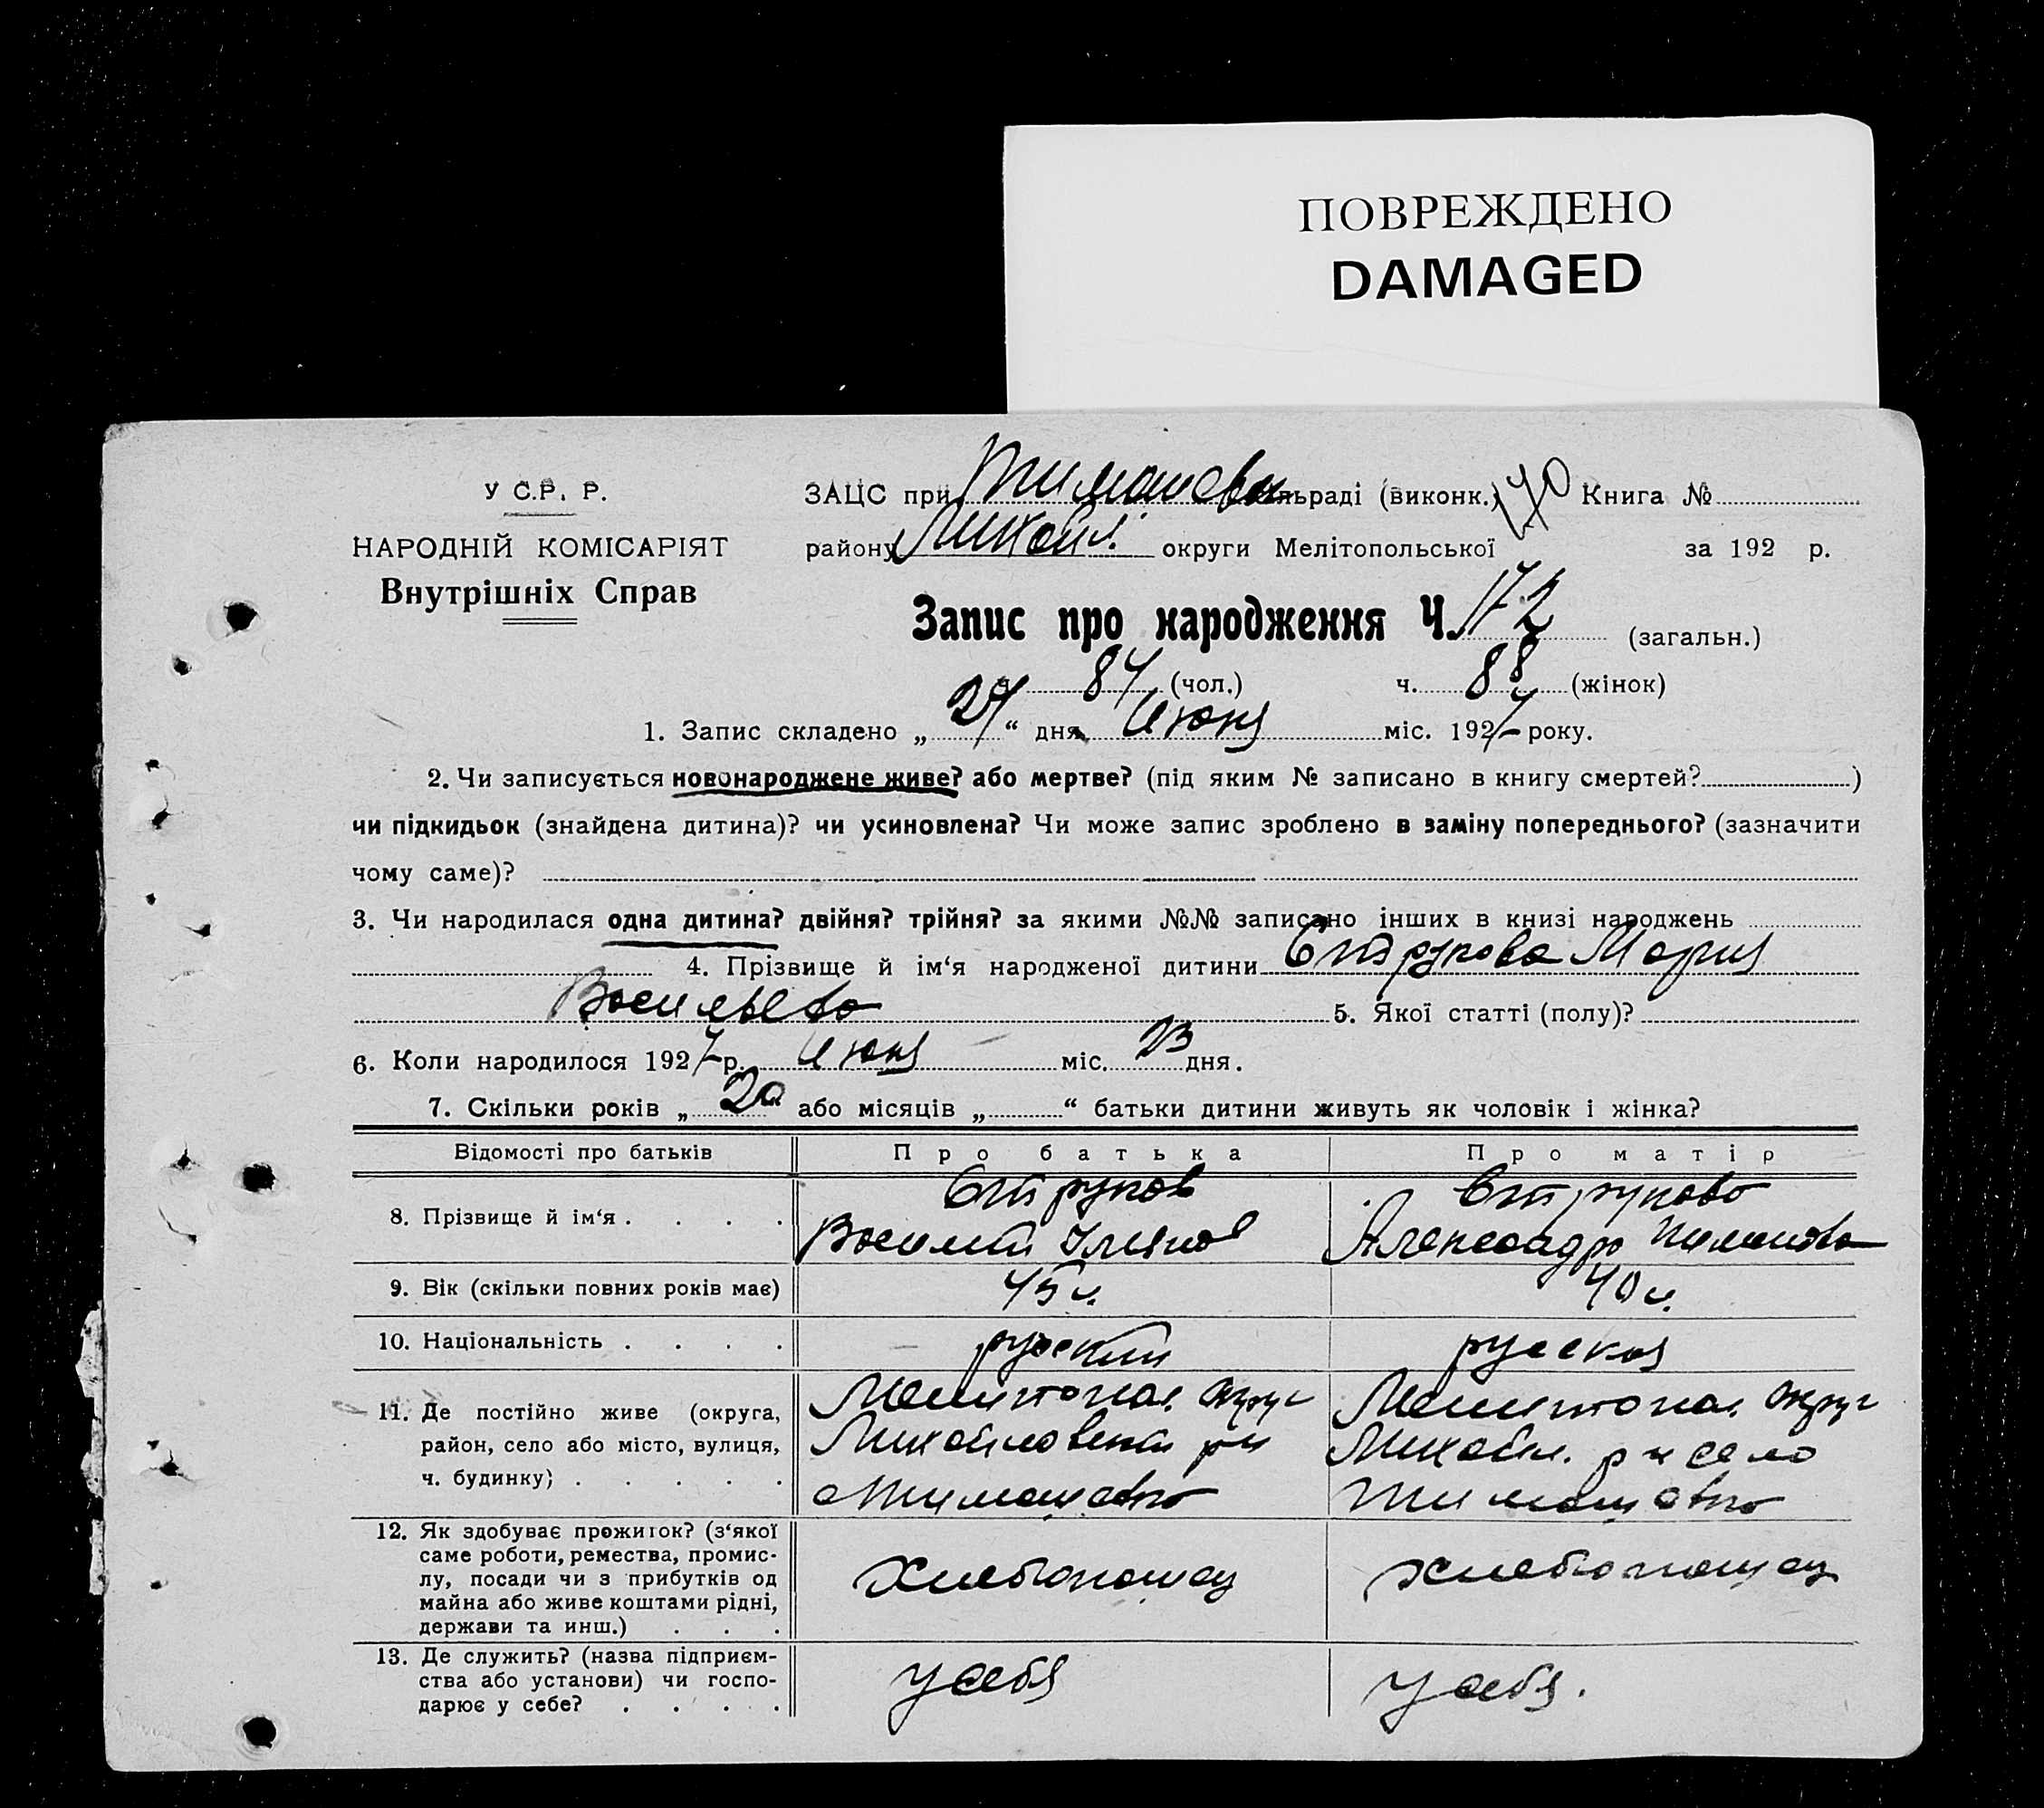 ПОВРЕЖДЕНО
DAMAGED
У С.Р. Р.
НАРОДНІЙ КОМІСАРІЯТ
Внутрішніх Справ
ЗАЦС при Тимошевк льраді (виконк.) Книга №
району Михайл. округи Мелітопольської за 192 р.
Запис про народження Ч. 172 (загальн.)
84 (чол.) ч. 88 (жінок)
1. Запис складено „ 27 “ дня Июня міс. 1927 року.
2. Чи записується новонароджене живе? або мертве? (під яким № записано в книгу смертей? )
чи підкидьок (знайдена дитина)? чи усиновлена? Чи може запис зроблено в заміну попереднього? (зазначити
чому саме)?
3. Чи народилася одна дитина? двійня? трійня? за якими №№ записано інших в книзі народжень
4. Прізвище й ім‘я народженої дитини Струкова Мария
Васильева 5. Якої статті (полу)?
6. Коли народилося 1927 р. Июня міс. 23 дня.
7. Скільки років „ 20 або місяців „ “ батьки дитини живуть як чоловік і жінка?
Відомості про батьків Про батька Про матір
8. Прізвище й ім‘я . . . . Струков Струкова
Василий Александра
9. Вік (скільки повних років має) 45 л. 40 л.
10. Національність . . . . русский русская
11. Де постійно живе (округа, Мелитопол. округ Мелитопол. округ
район, село або місто, вулиця, Михайловский рн Михайл. р н село
ч. будинку) . . . . . Тимошевка Тимошевка
12. Як здобуває прожиток? (з‘якої
саме роботи, ремества, промис-
лу, посади чи з прибутків од Хлебопашец хлебопашец
майна або живе коштами рідні,
держави та инш.) . . .
13. Де служить? (назва підприєм-
ства або установи) чи госпо- у себя у себя.
дарює у себе? . . . .